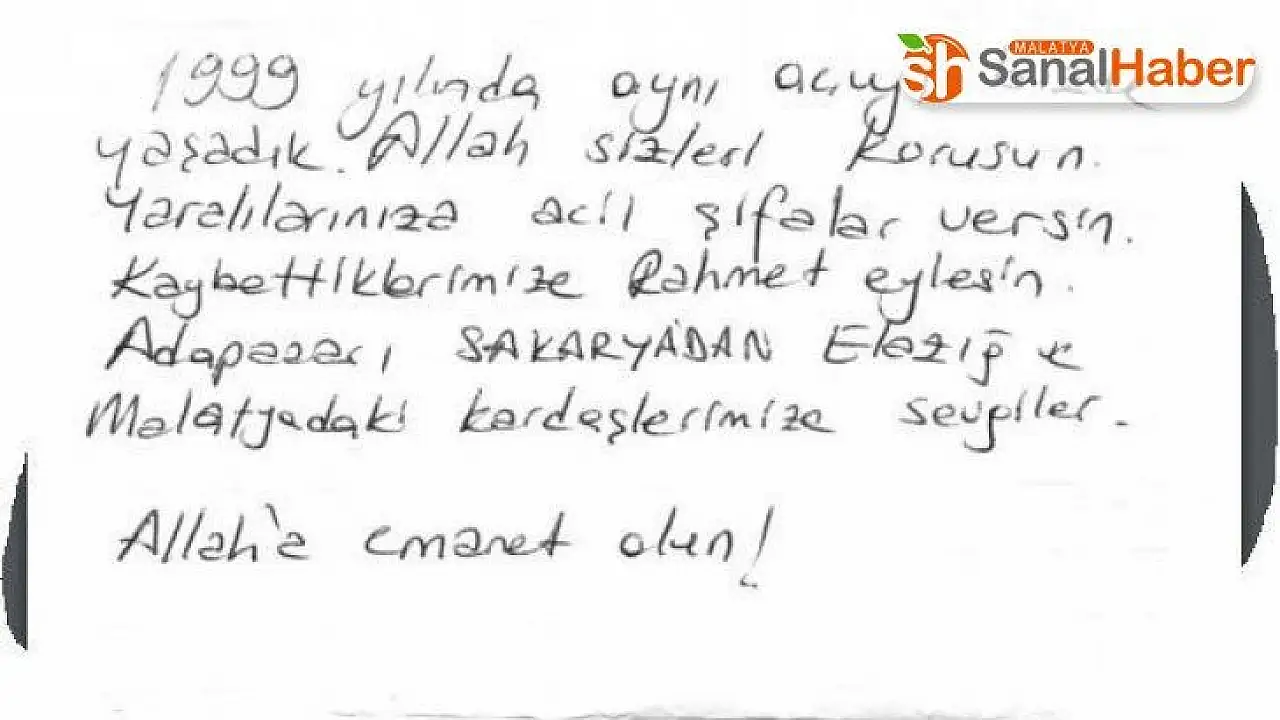 1999 yılında aynı acıy
MALATYA
SanalHaber
yaşadık. Allah sizleri korusun.
Yaralılarınıza acil şifalar versin.
Kaybettiklerimize Rahmet eylesin.
Adapazarı SAKARYA'DAN Elazığ ve
Malatyadaki kardeşlerimize sevgiler.
Allah'a emanet olun!